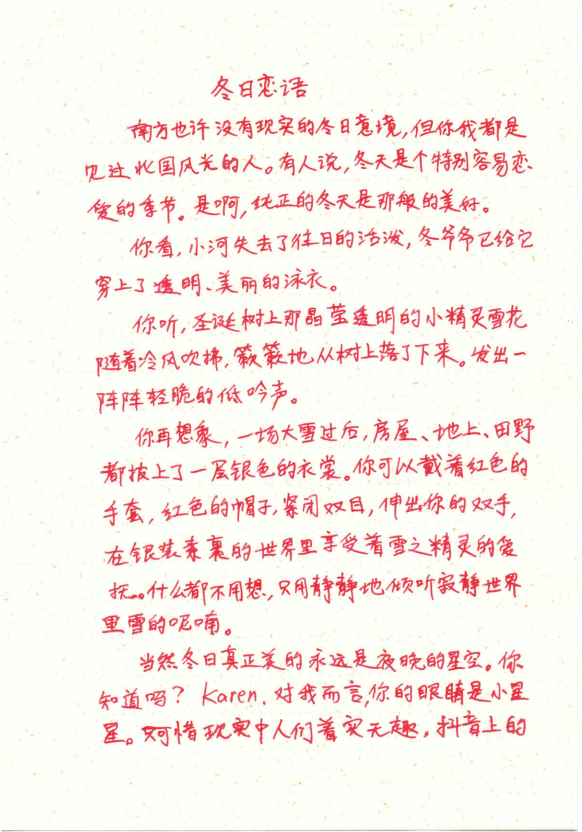 冬日恋语
南方也许没有现实的冬日意境,但你我都是
见过北国风光的人。有人说,冬天是个特别容易恋
爱的季节。是啊,纯正的冬天是那般的美好。
你看,小河失去了往日的活泼,冬爷爷已给它
穿上了透明、美丽的泳衣。
你听,圣诞树上那晶莹透明的小精灵雪花
随着冷风吹拂,簌簌地从树上落了下来。发出一
阵阵轻脆的低吟声。
你再想象,一场大雪过后,房屋、地上、田野
都披上了一层银色的衣裳。你可以戴着红色的
手套,红色的帽子,紧闭双目,伸出你的双手,
在银装素裹的世界里享受着雪之精灵的爱
抚……什么都不用想,只用静静地倾听寂静世界
里雪的呢喃。
当然冬日真正美的永远是夜晚的星空。你
知道吗? Karen.对我而言,你的眼睛是小星
星。只可惜现实中人们着实无趣,抖音上的